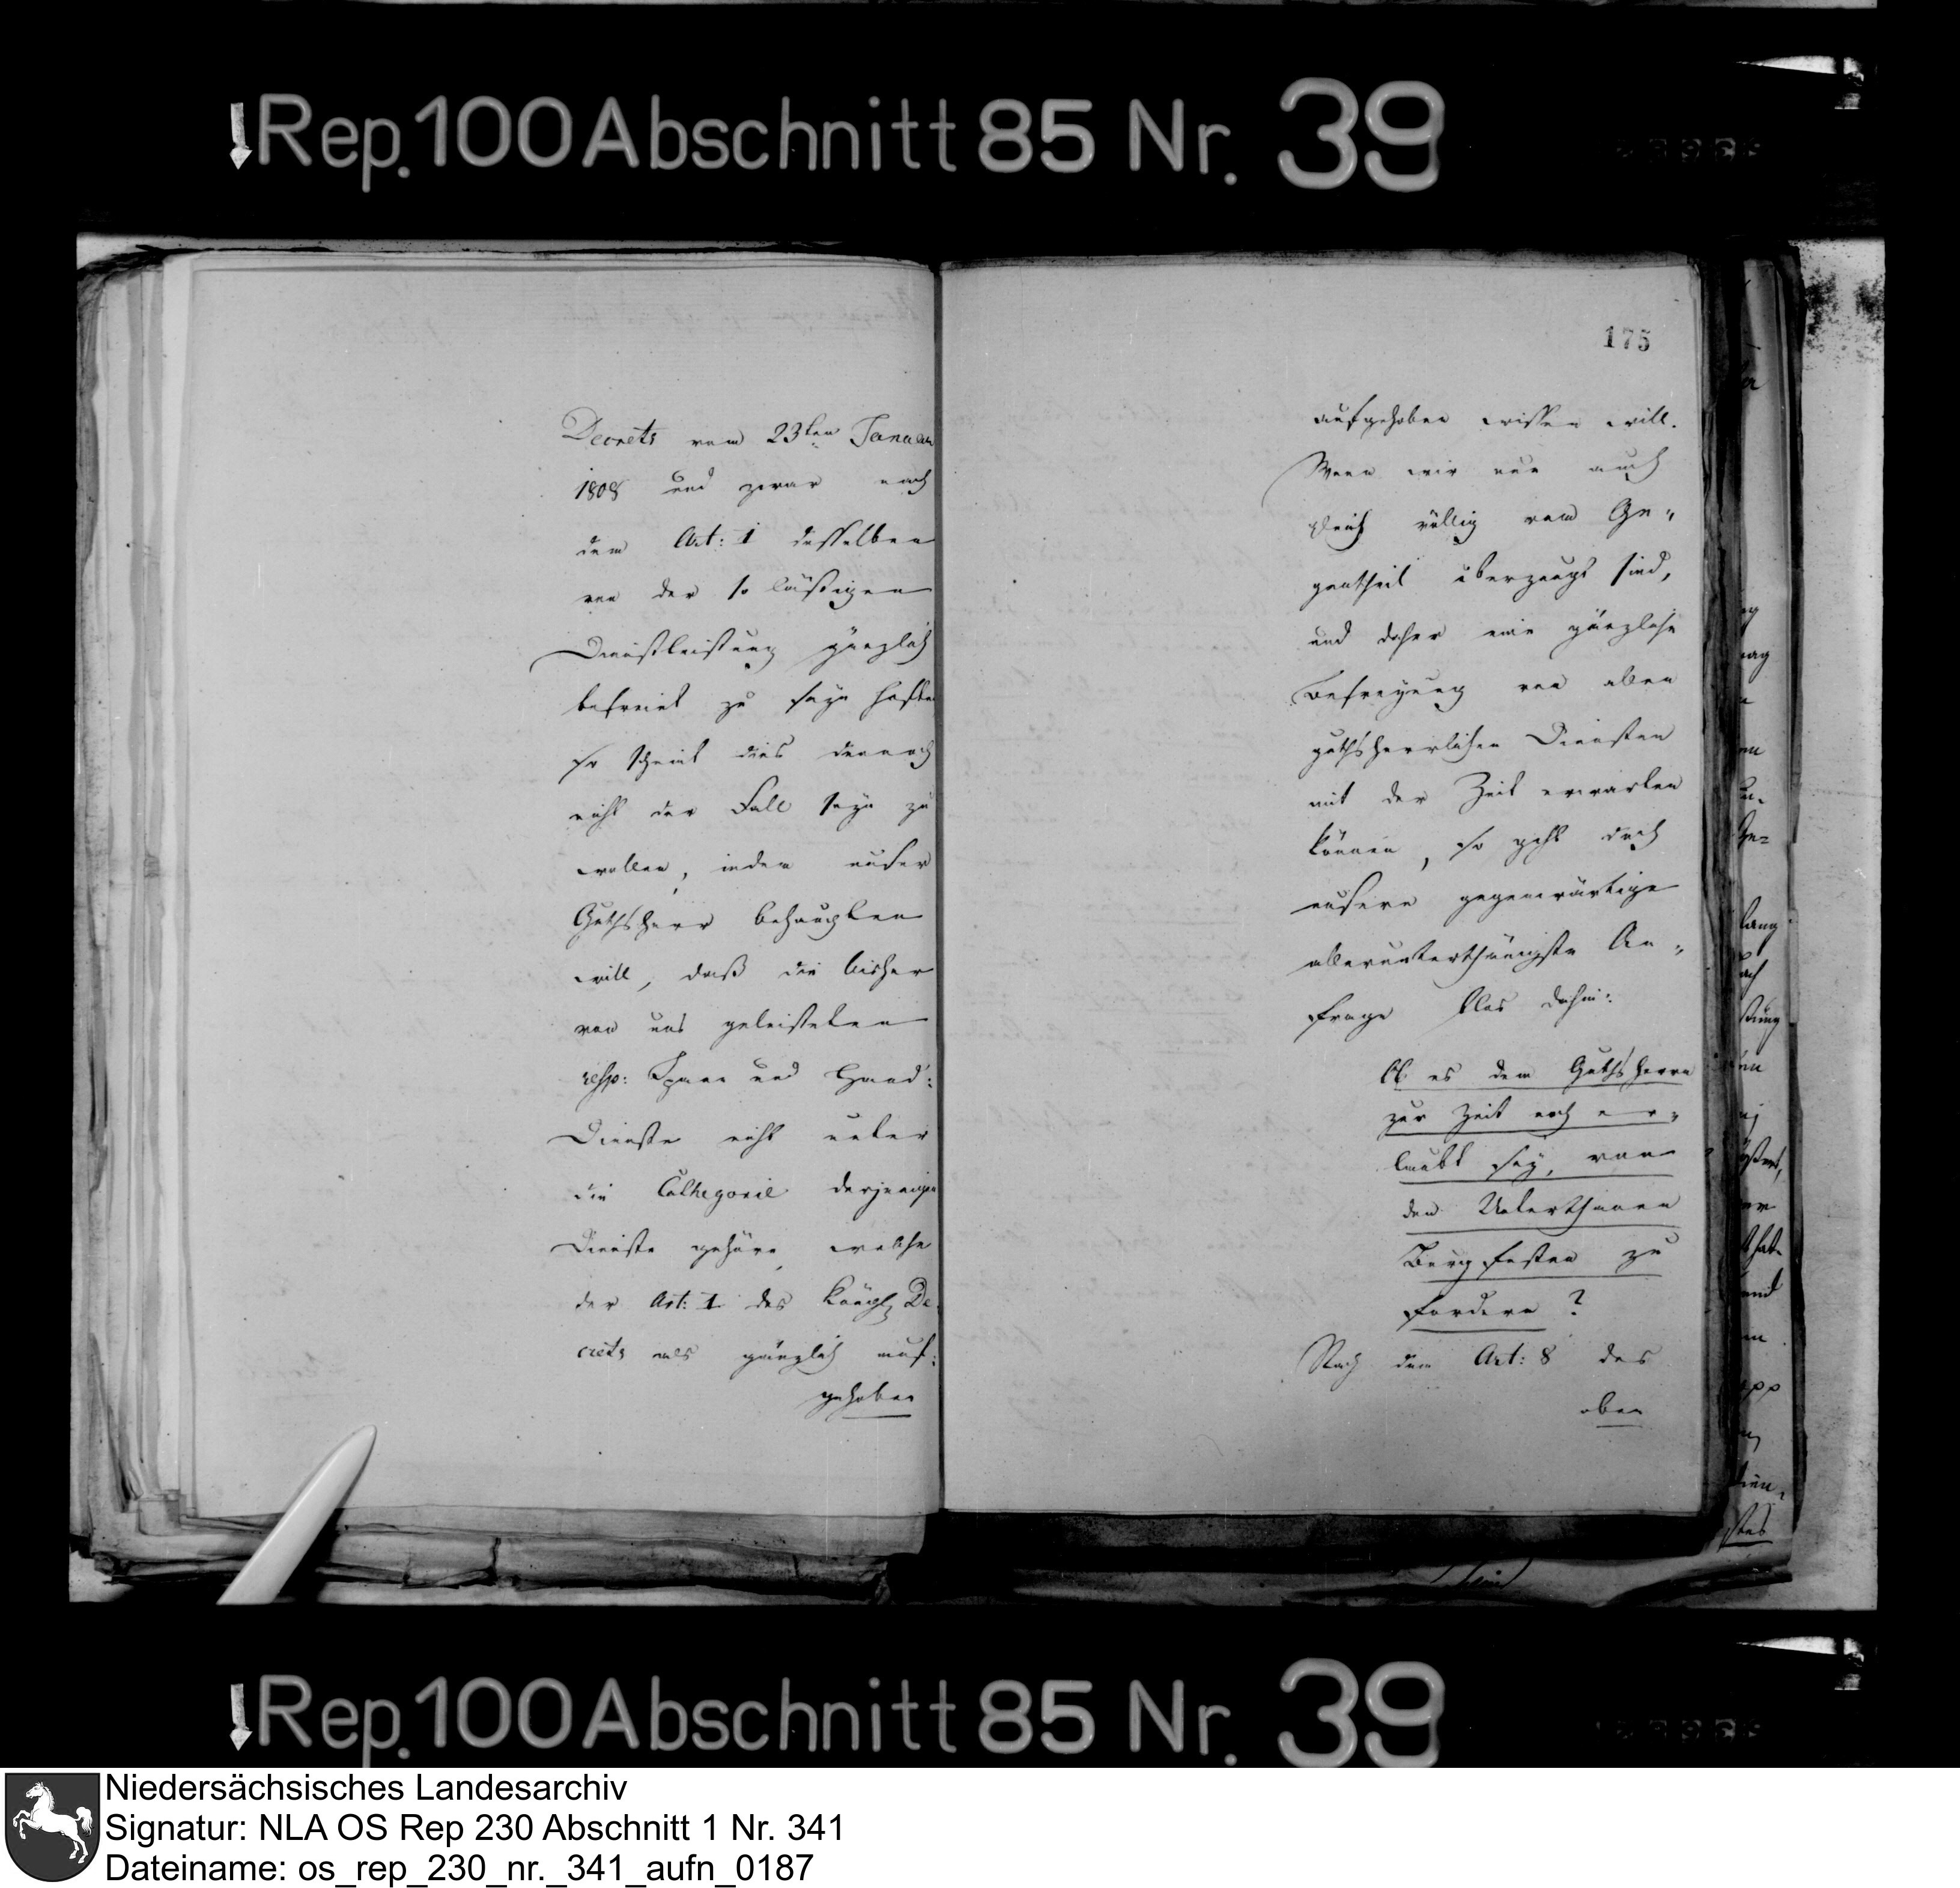 Rep. 100 Abschnitt 85 Nr. 39
Decrets vom 23ten Januar
1808 und zwar nach
dem Art: 1 desselben
von der so lästigen
Dienstleistung gänzlich
befreiet zu seyn hoften
so scheint dies dennoch
nicht der Fall seyn zu
wollen, indem unser
Guthsherr behaupten
will, daß die bisher
von uns geleisteten
resp: Spann und Hand:
Dienste nicht unter
die Cathegorie derjenigen
Dienste gehöre, welche
der Art: 1 des Königl De:
crets als gänzlich auf:
gehoben
175
aufgehoben wissen will.
Wenn wir nun auch
gleich völlig vom Ge„
gentheil überzeugt sind,
und daher eine gänzliche
Befreyung von allen
guthsherrlichen Diensten
mit der Zeit erwarten
können, so geht doch
unsere gegenwärtige
allerunterthänigste An„
frage blos dahin:
Ob es dem Guthsherrn
zur Zeit noch er„
laubt sey, von
den Unterthanen
Burgfesten zu
fordern?
Nach dem Art: 8 des
oben
Rep. 100 Abschnitt 85 Nr. 39
Niedersächsisches Landesarchiv
Signatur: NLA OS Rep 230 Abschnitt 1 Nr. 341
Dateiname: os_rep_230_nr._341_aufn_0187